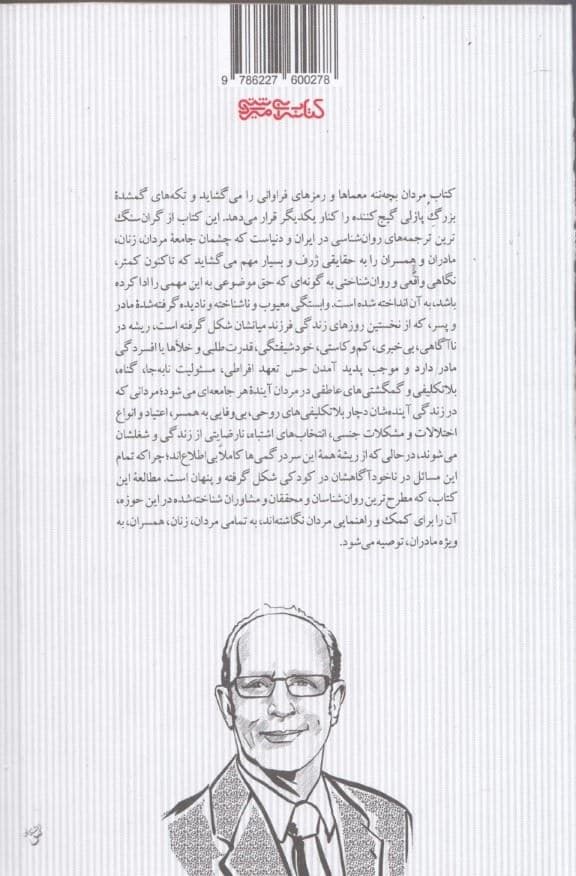 9 786227 600278
کتابسرای میردشتی
کتاب ِمردان بچه‌ننه معماها و رمزهای فراوانی را می‌گشاید و تکه‌های گمشدهٔ
بزرگِ پازلی گیج‌کننده را کنار یکدیگر قرار می‌دهد. این کتاب از گران‌سنگ
ترین ترجمه‌های روان‌شناسی در ایران و دنیاست که چشمان جامعهٔ مردان، زنان،
مادران و همسران را به حقایقی ژرف و بسیار مهم می‌گشاید که تاکنون کمتر،
نگاهی واقعی و روان‌شناختی به گونه‌ای که حق موضوعی به این مهمی را ادا کرده
باشد، به آن انداخته شده است. وابستگی معیوب و ناشناخته و نادیده گرفته‌شدهٔ مادر و
پسر، که از نخستین روزهای زندگی فرزند میانشان شکل گرفته است، ریشه در
ناآگاهی، بی‌خبری، کم‌وکاستی، خودشیفتگی، قدرت‌طلبی و خلأها یا افسردگی
مادر دارد و موجب پدید آمدن حس تعهد افراطی، مسئولیت نابه‌جا، گناه،
بلاتکلیفی و گمگشتی‌های عاطفی در مردان آیندهٔ هر جامعه‌ای می‌شود؛ مردانی که
در زندگی آینده‌شان دچار بلاتکلیفی‌های روحی، بی‌وفایی به همسر، اعتیاد و انواع
اختلالات و مشکلات جنسی، انتخاب‌های اشتباه، نارضایتی از زندگی و شغلشان
می‌شوند، در حالی که از ریشهٔ همهٔ این سردرگمی‌ها کاملا بی‌اطلاع‌اند؛ چرا که تمام
این مسائل در ناخودآگاهشان در کودکی شکل گرفته و پنهان است. مطالعهٔ این
کتاب، که مطرح‌ترین روان‌شناسان و محققان و مشاوران شناخته‌شده در این حوزه،
آن را برای کمک و راهنمایی مردان نگاشته‌اند، به تمامی مردان، زنان، همسران، به
ویژه مادران، توصیه می‌شود.